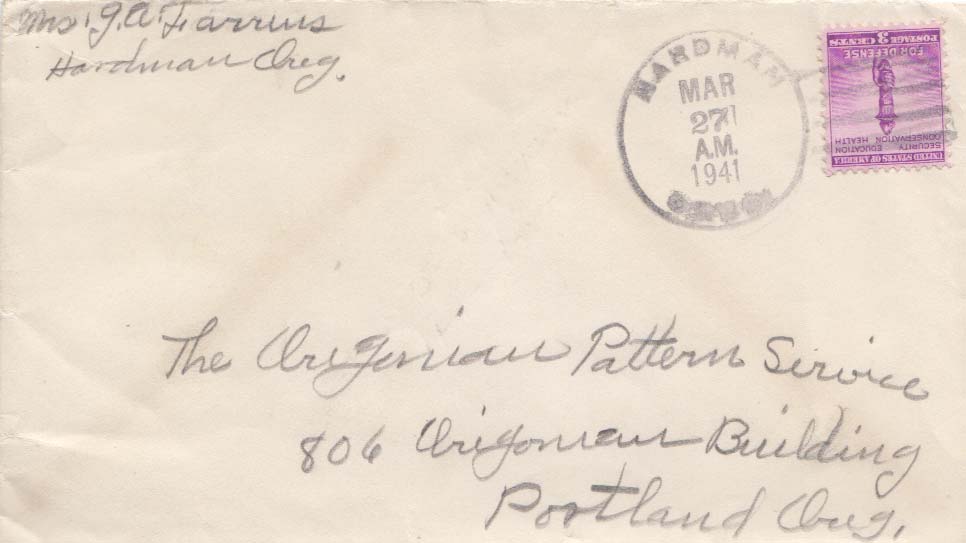 Mrs. J.A. Farrens
Hardman Oreg.
HARDMAN
MAR
27
A.M.
1941
UNITED STATES OF AMERICA
SECURITY EDUCATION
CONSERVATION HEALTH
FOR DEFENSE
POSTAGE 3 CENTS
The Oregonian Pattern Service
806 Oregonian Building
Portland Oreg.